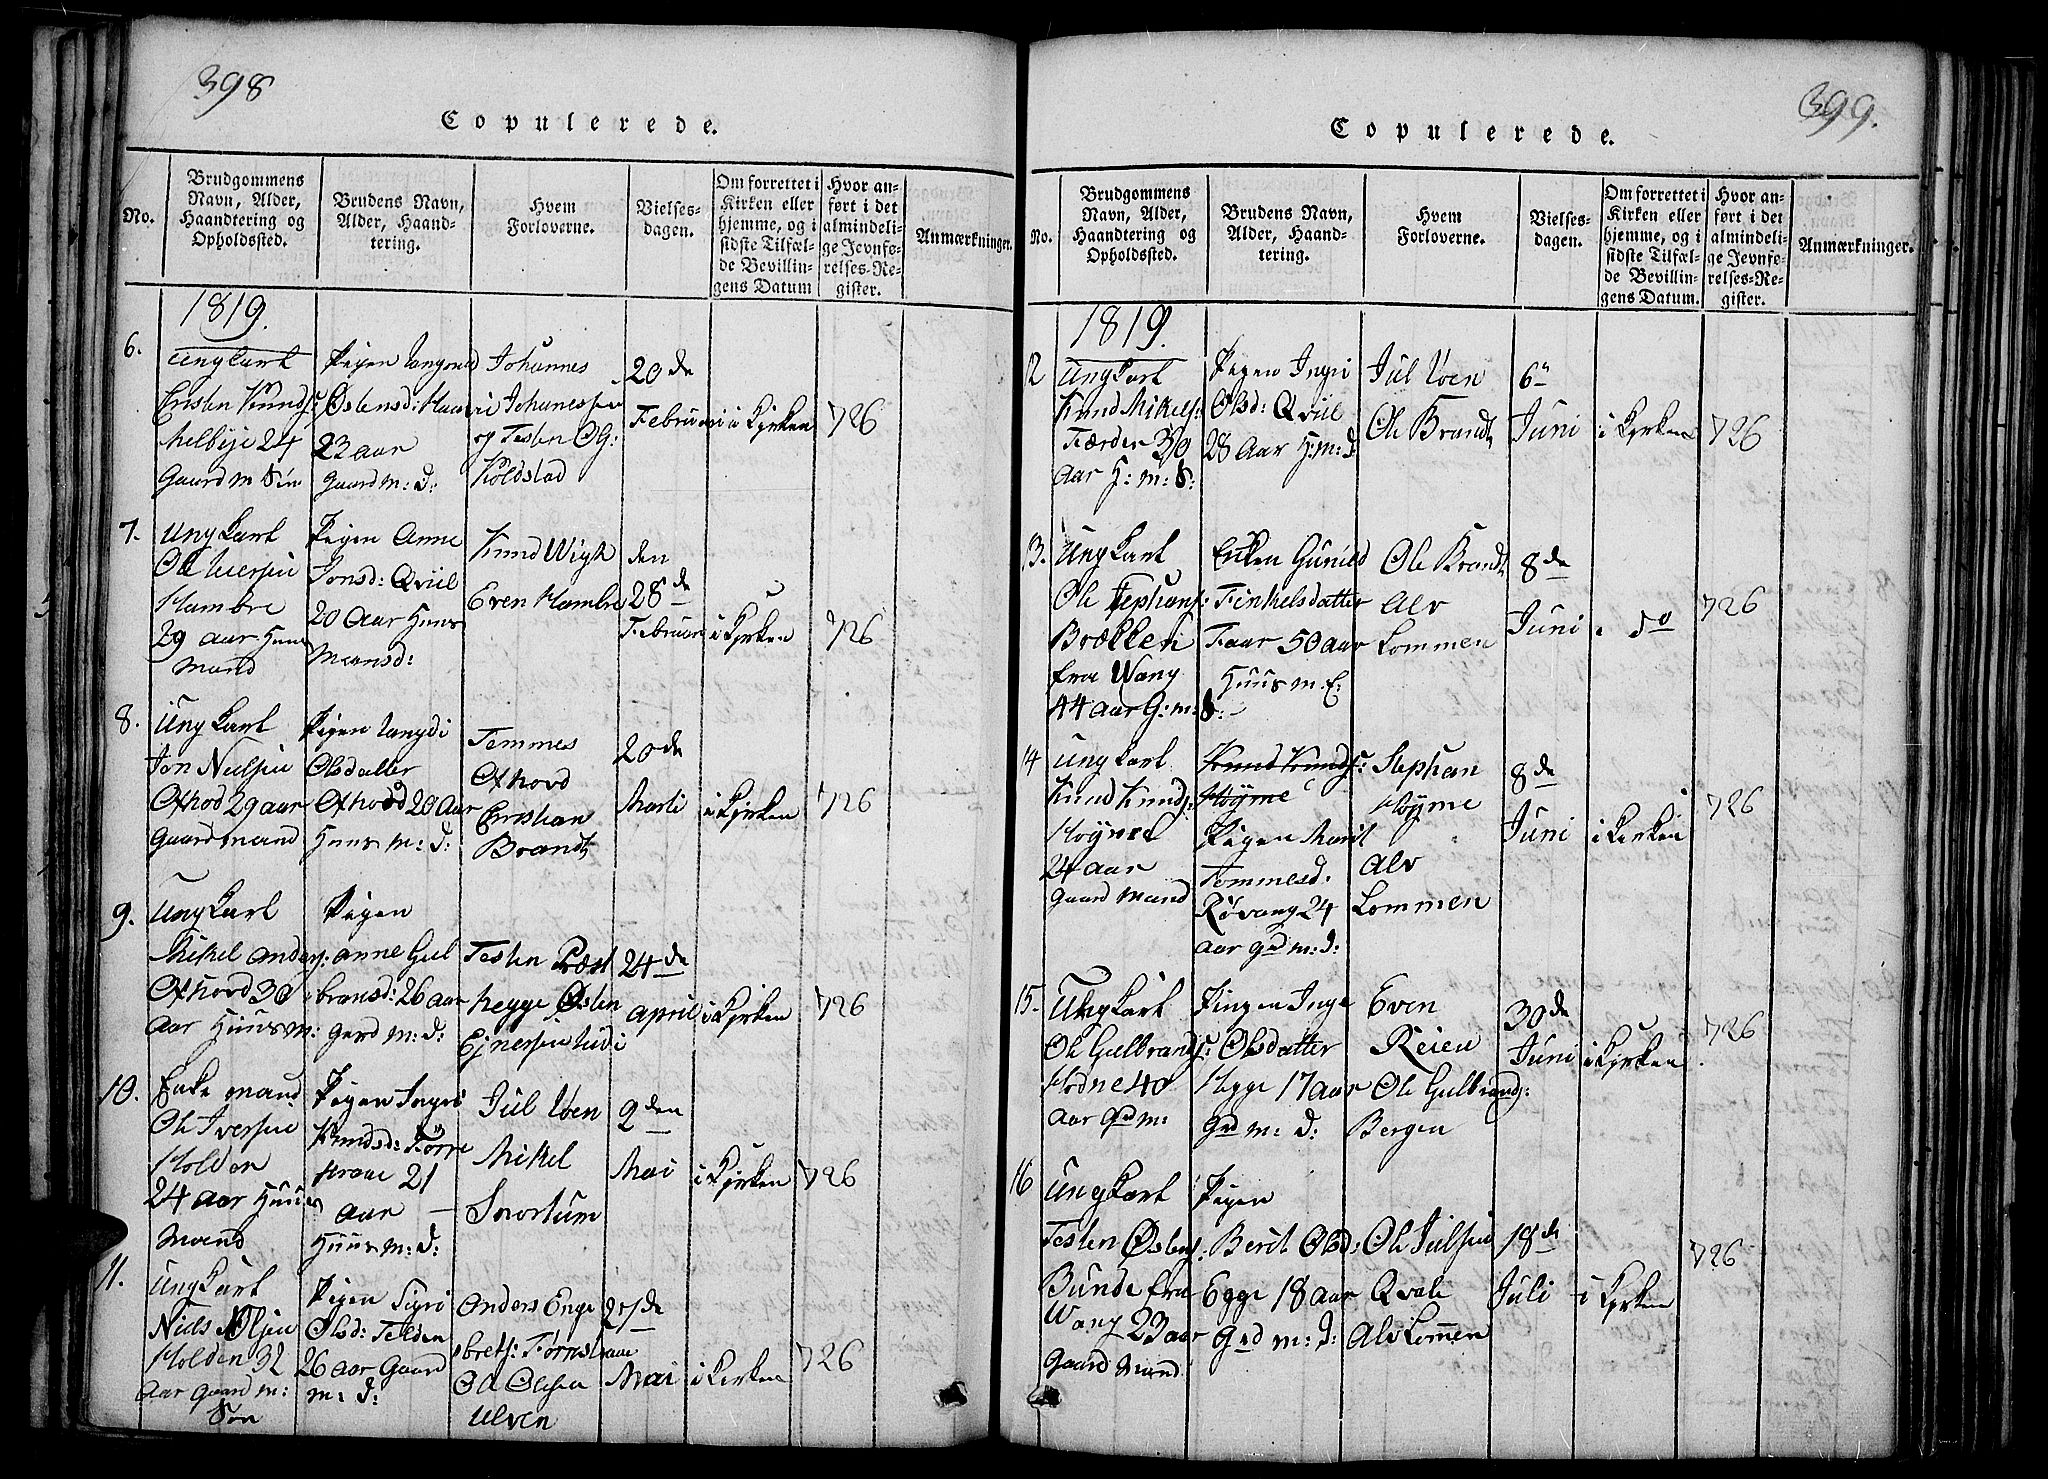 398
Copulerede.
No.
Brudgommens
Navn, Alder,
Haandtering og
Opholdssted.
Brudens Navn,
Alder, Haand-
tering.
Hvem
Forloverne.
Vielses-
dagen.
Om forrettet i
Kirken eller
hjemme, og i
sidste Tilfæl-
de Bevillin-
gens Datum
Hvor an-
ført i det
almindeli-
ge Jevnfø-
relses-Re-
gister.
Anmærkninger.
1819.
6.
ungkarl
Knudss:
24
Gaardm Sön
Pigen
Östensd:
23 aar
gaardm: d:
Johannes
Johanessen
og Testen OG:
Koldstad
20de
Februari
i Kjrken
726
7.
Ungkarl
Ole Iversen
Hambre
29 aar Huus
mand
Pigen Anne
Jonsd: Qviil
20 Aar Huus
Maansd:
Knud Wigh
Even Hambre
den
28de
Februari
i Kjrken
726
8.
Ungkarl
Jon Nielsen
Ofhod 29 aar
Gaardmand
Pigen
Olsdatter
Ofhord 20 Aar
Huusm: d:
Temmes
Ofhord
Cristian
Brandt
20de
Marti
i Kjrken
726
9.
Ungkarl
Mikel Anders:
Ofhord 30
aar Huusm:
Pigen
anne Gul
bransd: 26 aar
gard m: d:
Testen Præst
hegge Östen
Ejnersen
24de
April
i Kjrken
726
10.
Enke mand
Ole Iversen
Holden
24 aar Huus
mand
Pigen Ingri
Knudsd: Förre
21
aar
Huusm: d:
Jul Loen
Mikel
2den
Mai
i Kjrken
726
11.
Ungkarl
Niels Olsen
Holden 32
Aar gaardm:
Sön
Pigen Sigri
Olsd:
26 aar Gaard
m: d:
Anders Enge
brets:
Ole Olsen
Ulven
27de
Mai
i Kerken
726
399.
Copulerede.
No.
Brudgommens
Navn, Alder,
Haandtering og
Opholdssted.
Brudens Navn,
Alder, Haand-
tering.
Hvem
Forloverne.
Vielses-
dagen.
Om forrettet i
Kirken eller
hjemme, og i
sidste Tilfæl-
de Bevillin-
gens Datum.
Hvor an-
ført i det
almindeli-
ge Jevnfø-
relses-Re-
gister.
Anmærkninger.
1819.
12
Ungkarl
Knud Mikels:
30
Aar H: m: S:
Pigen Ingri
Olsd: Qviil
28 Aar H:m:d:
Jul Loen
Ole Brandt
6te
Juni
i Kjrken
726
13.
Ungkarl
Ole Stephens:
Brækken
fra Wang
44 aar G: m: S:
Enken Gunild
Finkelsdatter
Faar 50 aar
Huusm. E:
Ole Brandt
Alv
Lommen
8de
Juni
do
726
14
Ungkarl
Knud Knuds:
Höyme
24 aar
Gaard Mand
Knud Knuds:
Höyme
Pigen Marit
Tommesd:
Rövang 24
aar grd m: d:
Stephan
Höyme
Alv
Lommen
8de
Juni
i Kerken
726
15.
Ungkarl
Ole Gulbrands:
Hodne 40
aar Grd m:
Pingen Inge
Olsdatter
Hegge 17 aar
Grd m: d:
Even
Reien
Ole Gulbrands:
Bergen
30de
Juni
i Kjrken
726
16
Ungkarl
Testen Östens:
Bunde fra
Wang 23 aar
Gaard Mand
Pigen
Berit Olsd:
Egge 18 aar
Grd m: d:
Ole Julsen
Qvale
Alv Lommen
18de
Juli
i Kjrken
726